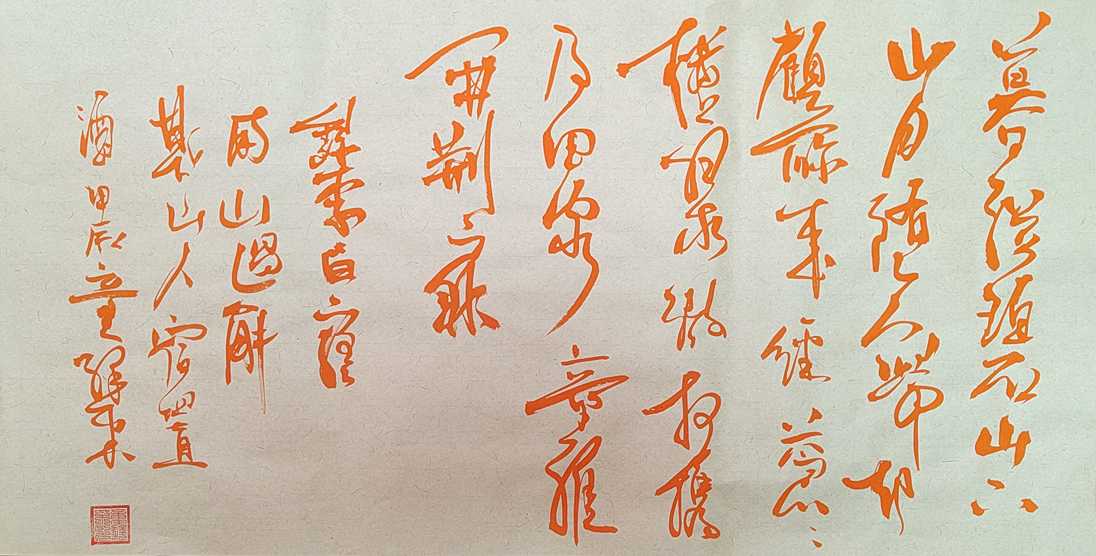 暮從碧山下
山月隨人歸却
顧所來徑蒼〻
橫翠微相攜
及田家童稚
開荊扉
李白下終
南山過斛
斯山人宿置
酒甲辰童